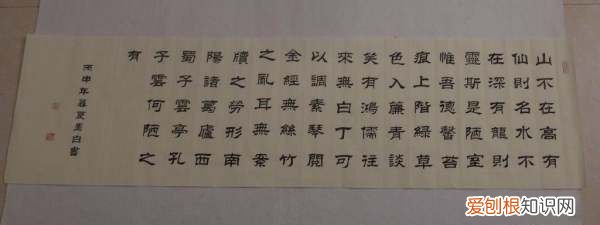 山不在高有
仙則名水不
在深有龍則
靈斯是陋室
惟吾德馨苔
痕上階綠草
色入簾青談
笑有鴻儒往
來無白丁可
以調素琴閱
金經無絲竹
之亂耳無案
牘之勞形南
陽諸葛廬西
蜀子雲亭孔
子雲何陋之
有
丙申年暮夏白書
爱刨根知识网